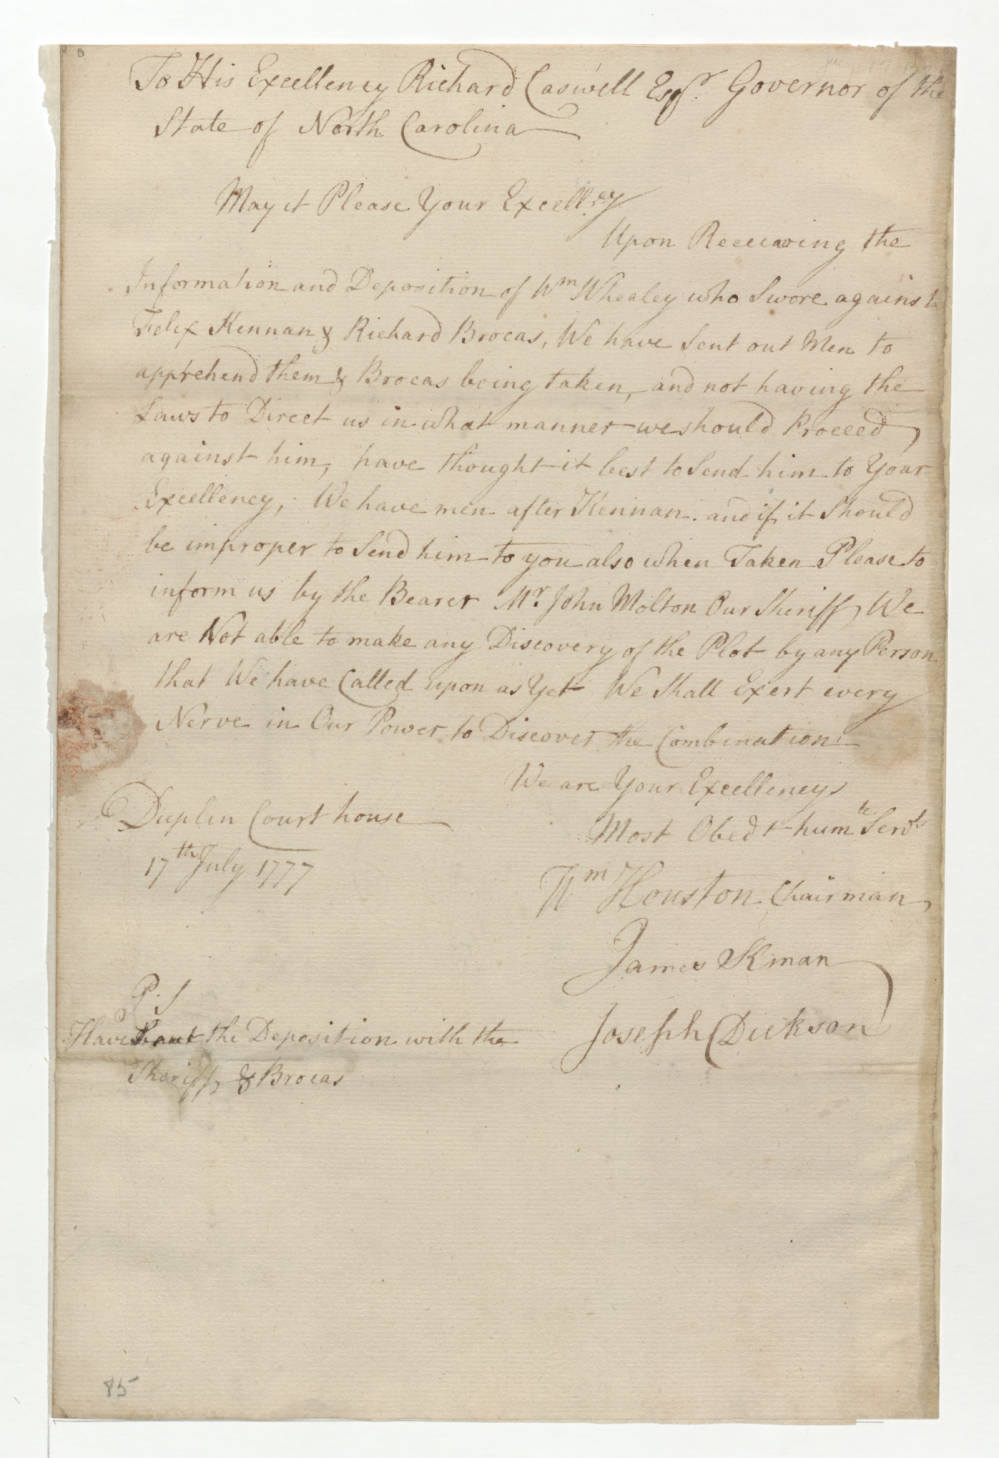 To His Excellency Richard Caswell Esqr. Governor of the
State of North Carolina
May it Please Your Excell.cy
Upon Receiving the
Information and Deposition of Wm Whealey who Swore against
Felix Kennan & Richard Brocas, We have Sent out Men to
apprehend them & Brocas being taken, and not having the
Laws to Direct us in what manner we should Proceed
against him, have thought it best to Send him to Your
Excellency, We have men after Kennan. and if it Should
be improper to Send him to you also when Taken Please to
inform us by the Bearer Mr. John Molton Our Sheriff, We
are Not able to make any Discovery of the Plot by any Person
that We have Called upon as Yet We Shall Exert every
Nerve in Our Power to Discover the Combination
We are Your Excellencys
Most Obedt humle Servts
Duplin Court house
17th July 1777
Wm Houston Chairman
James Kman
Joseph Dickson
P.S
Have the Deposition with the
Sheriff, & Brocas
85